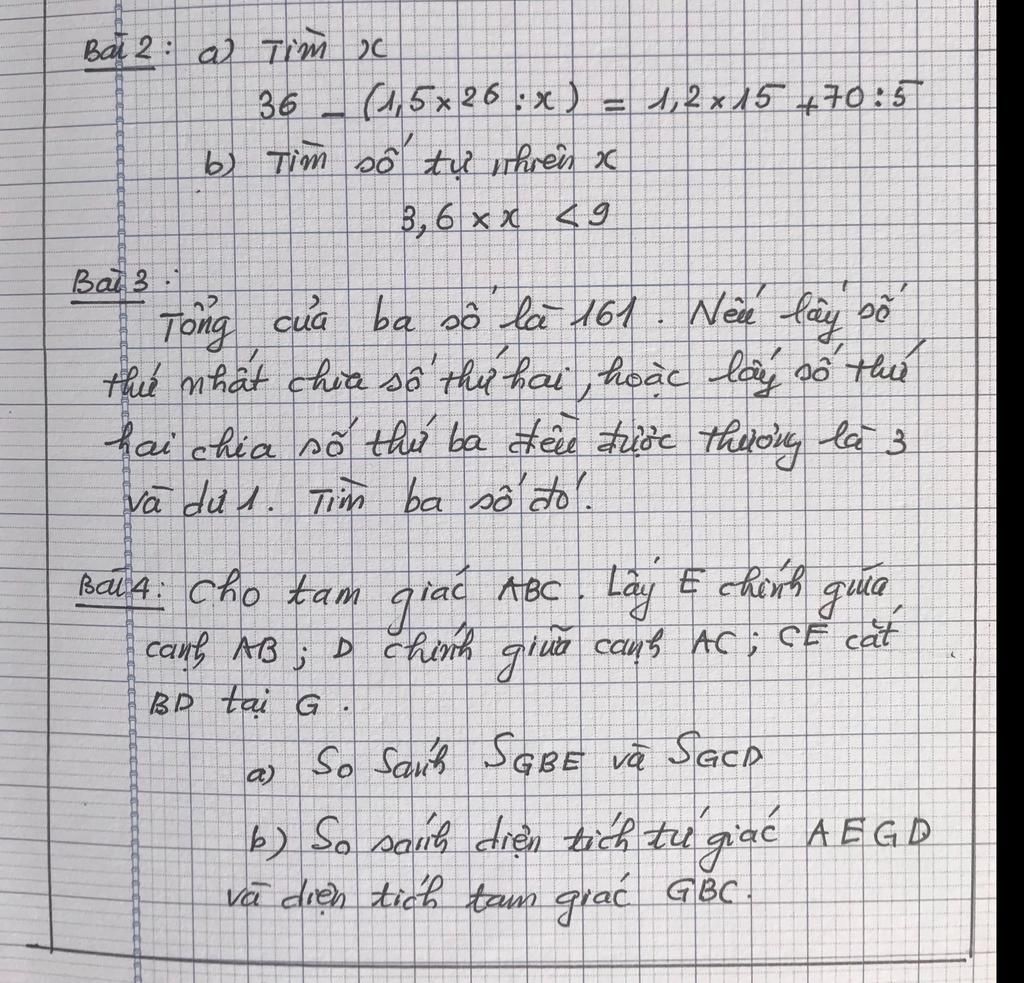 Bài 2 : a) Tìm x
36 - (1,5 × 26 : x) = 1,2 × 15 + 70 : 5
b) Tìm số tự nhiên x
3,6 × x < 9
Bài 3 :
Tổng của ba số là 161. Nếu lấy số
thứ nhất chia số thứ hai, hoặc lấy số thứ
hai chia số thứ ba đều được thương là 3
và dư 1. Tìm ba số đó.
Bài 4 : Cho tam giác ABC. Lấy E chính giữa
cạnh AB ; D chính giữa cạnh AC ; CE cắt
BD tại G.
a) So sánh SGBE và SGCD
b) So sánh diện tích tứ giác AEGD
và diện tích tam giác GBC.